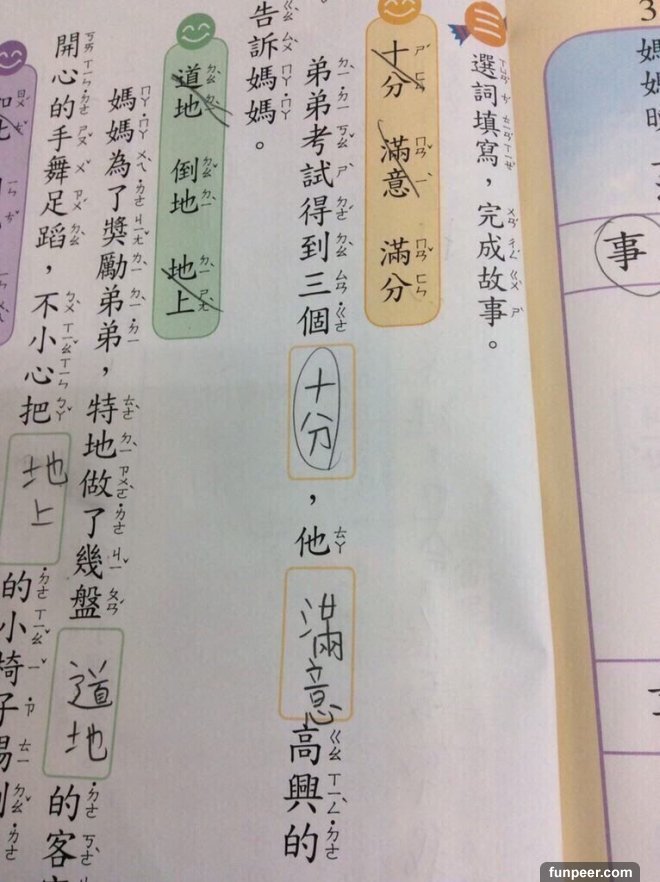 3
媽媽
事
三
選詞填寫，完成故事。
十分 滿意 滿分
弟弟考試得到三個十分，他滿意高興的
告訴媽媽。
道地 倒地 地上
媽媽為了獎勵弟弟，特地做了幾盤道地的客
開心的手舞足蹈，不小心把地上的小椅子踢倒
funpeer.com